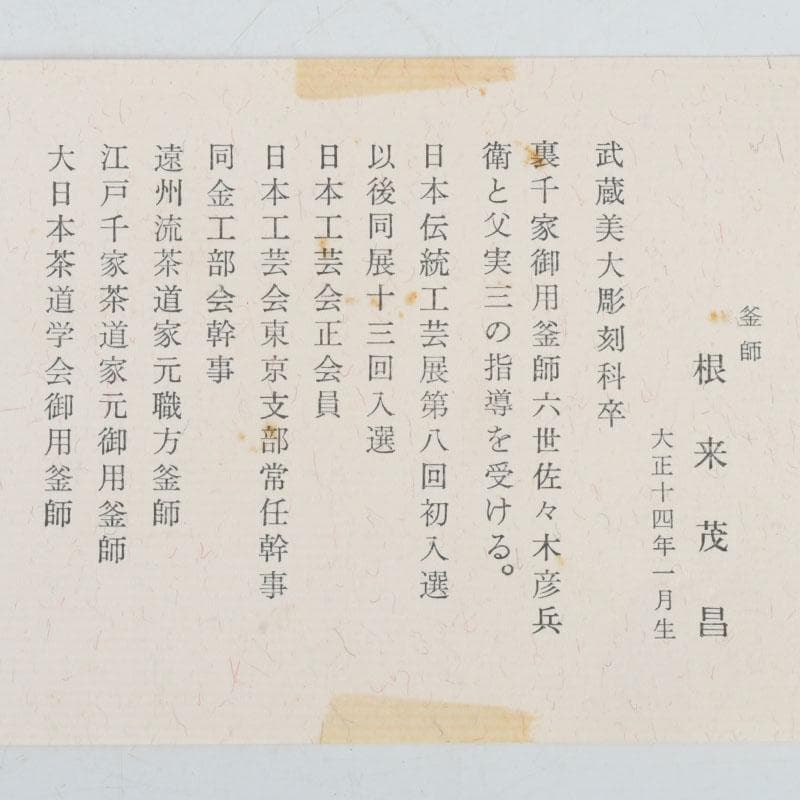 釜師
根来茂昌
大正十四年一月生
武蔵美大彫刻科卒
裏千家御用釜師六世佐々木彦兵
衛と父実三の指導を受ける。
日本伝統工芸展第八回初入選
以後同展十三回入選
日本工芸会正会員
日本工芸会東京支部常任幹事
同金工部会幹事
遠州流茶道家元職方釜師
江戸千家茶道家元御用釜師
大日本茶道学会御用釜師